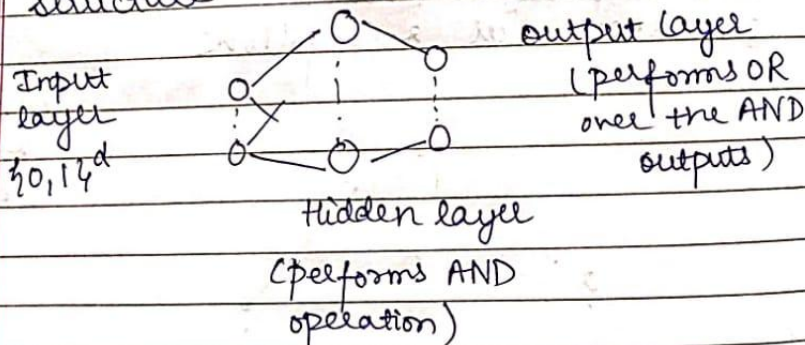 structure
Input
layer
{0,1}^d
output layer
(performs OR
over the AND
outputs)
Hidden layer
(performs AND
operation)